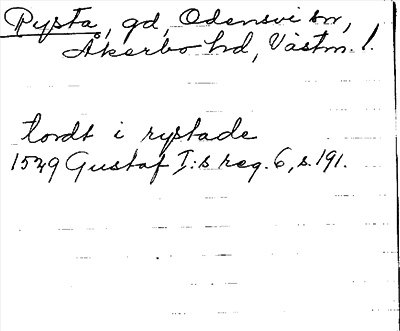 Rysta, gd, Odensvi sn,
Åkerbo hd, Västm. l.
tordt i rystade
1549 Gustaf I:s reg. 6, s. 191.